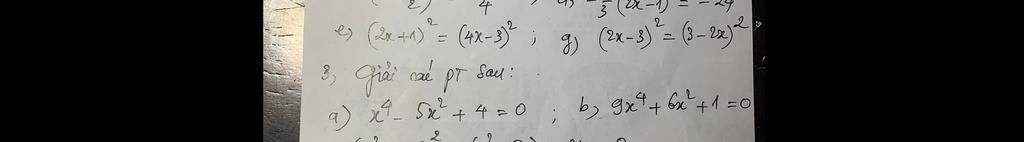 e) (2x+1)² = (4x-3)² ; g) (2x-3)² = (3-2x)²
3, Giải các PT sau:
a) x⁴ - 5x² + 4 = 0 ; b) 9x⁴ + 6x² + 1 = 0